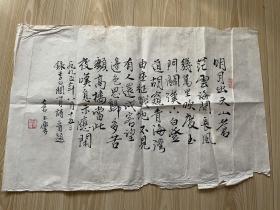 明月出天山蒼
茫雲海間長風
幾萬里吹度玉
門關漢下白登
道胡窺青海灣
由來征戰地不見
有人還戍客望
邊色思歸多苦
顏高樓當此
夜嘆息未應閒
錄李白關山月詩